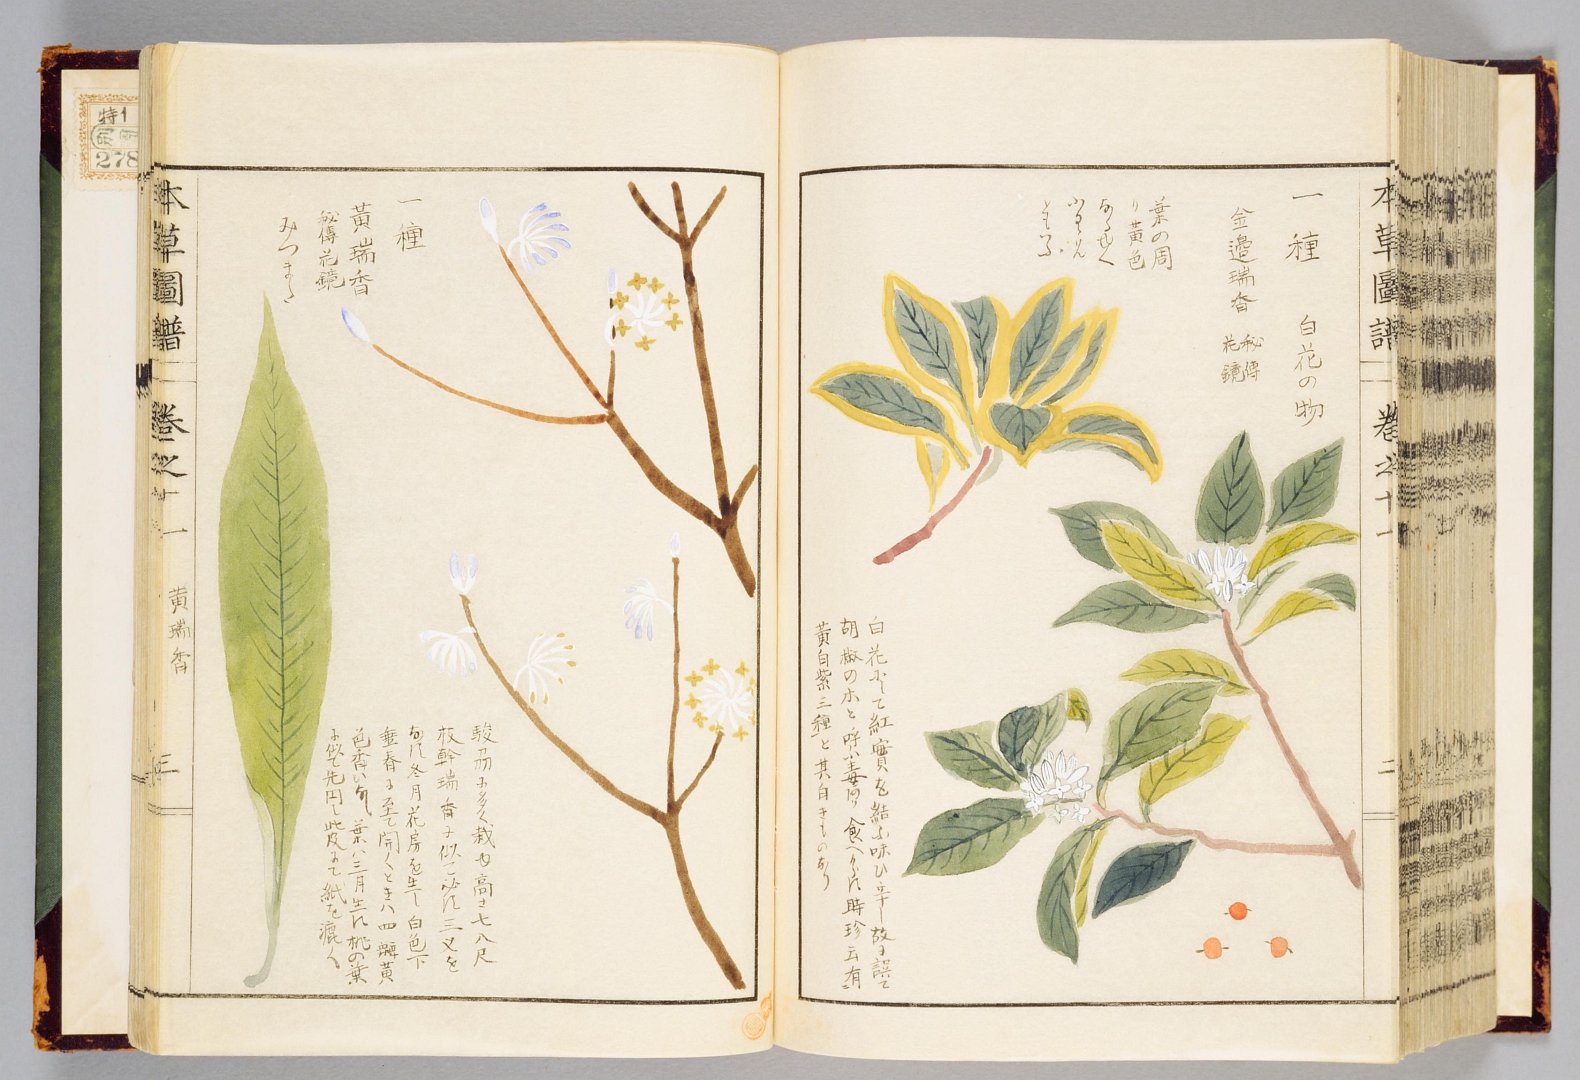 本草圖譜 卷之十一 二
一種 白花の物
金邉瑞香 秘傳花鏡
葉の周
り黄色
なるを
ふくりん
といふ
白花にして紅實を結ふ味ひ辛し故に誤て
胡椒の木と呼ふ毒あり食へからす時珍云有
黄白紫三種と其白きものなり
一種
黄瑞香
秘傳花鏡
みつまた
駿州に多く栽ゆ高さ七八尺
枝幹瑞香に似て必す三叉を
なす冬月花房を生し白色下
垂春に至て開くときハ四瓣黄
色香ひ有葉ハ三月生す桃の葉
に似て先円し此皮にて紙を漉く
本草圖譜 卷之十一 黄瑞香 三
特1
278